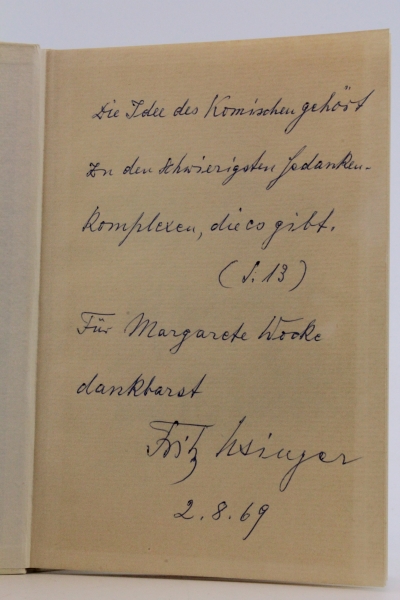 Die Idee des Komischen gehört
zu den schwierigsten Gedanken-
komplexen, die es gibt.
(S. 13)
Für Margarete Wocke
dankbarst
Fritz Usinger
2.8.69